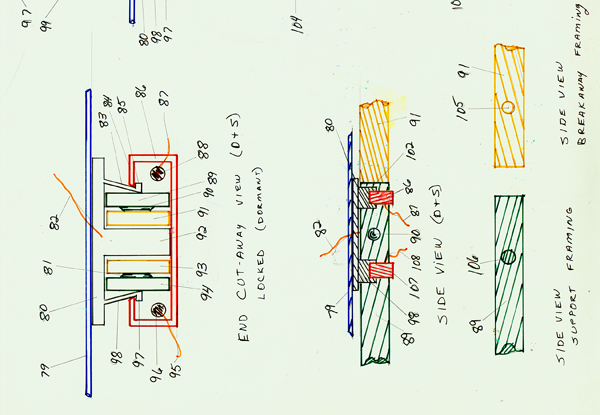 97
99
80
98
97
104
79
80
81
82
83
84
85
86
87
88
89
90
91
92
93
94
95
96
97
98
END CUT-AWAY VIEW (D+S)
LOCKED (DORMANT)
79
82
80
91
102
86
87
90
108
107
98
89
SIDE VIEW (D+S)
105
91
SIDE VIEW
BREAKAWAY FRAMING
89
106
SIDE VIEW
SUPPORT FRAMING